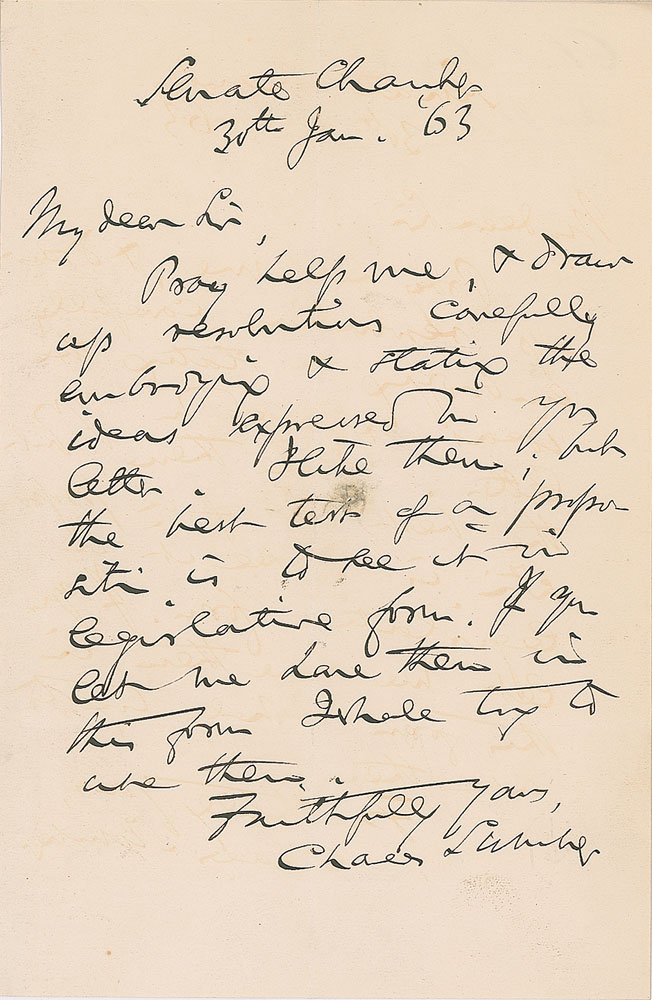 Senate Chamber
30th Jan. '63
My dear Sir,
Pray help me, & draw
up resolutions carefully
embodying & stating the
ideas expressed in yr
letter. I like them; but
the best test of a propo-
sitn is to see it in
legislative form. If you
let me have them in
this form I shall try to
use them.
Faithfully yours,
Chales Sumner